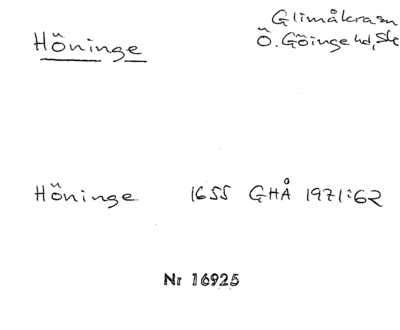 Glimåkra sn
Höninge
Ö. Göinge hd, Sk
Höninge 1655 GHÅ 1971:62
Nr 16925